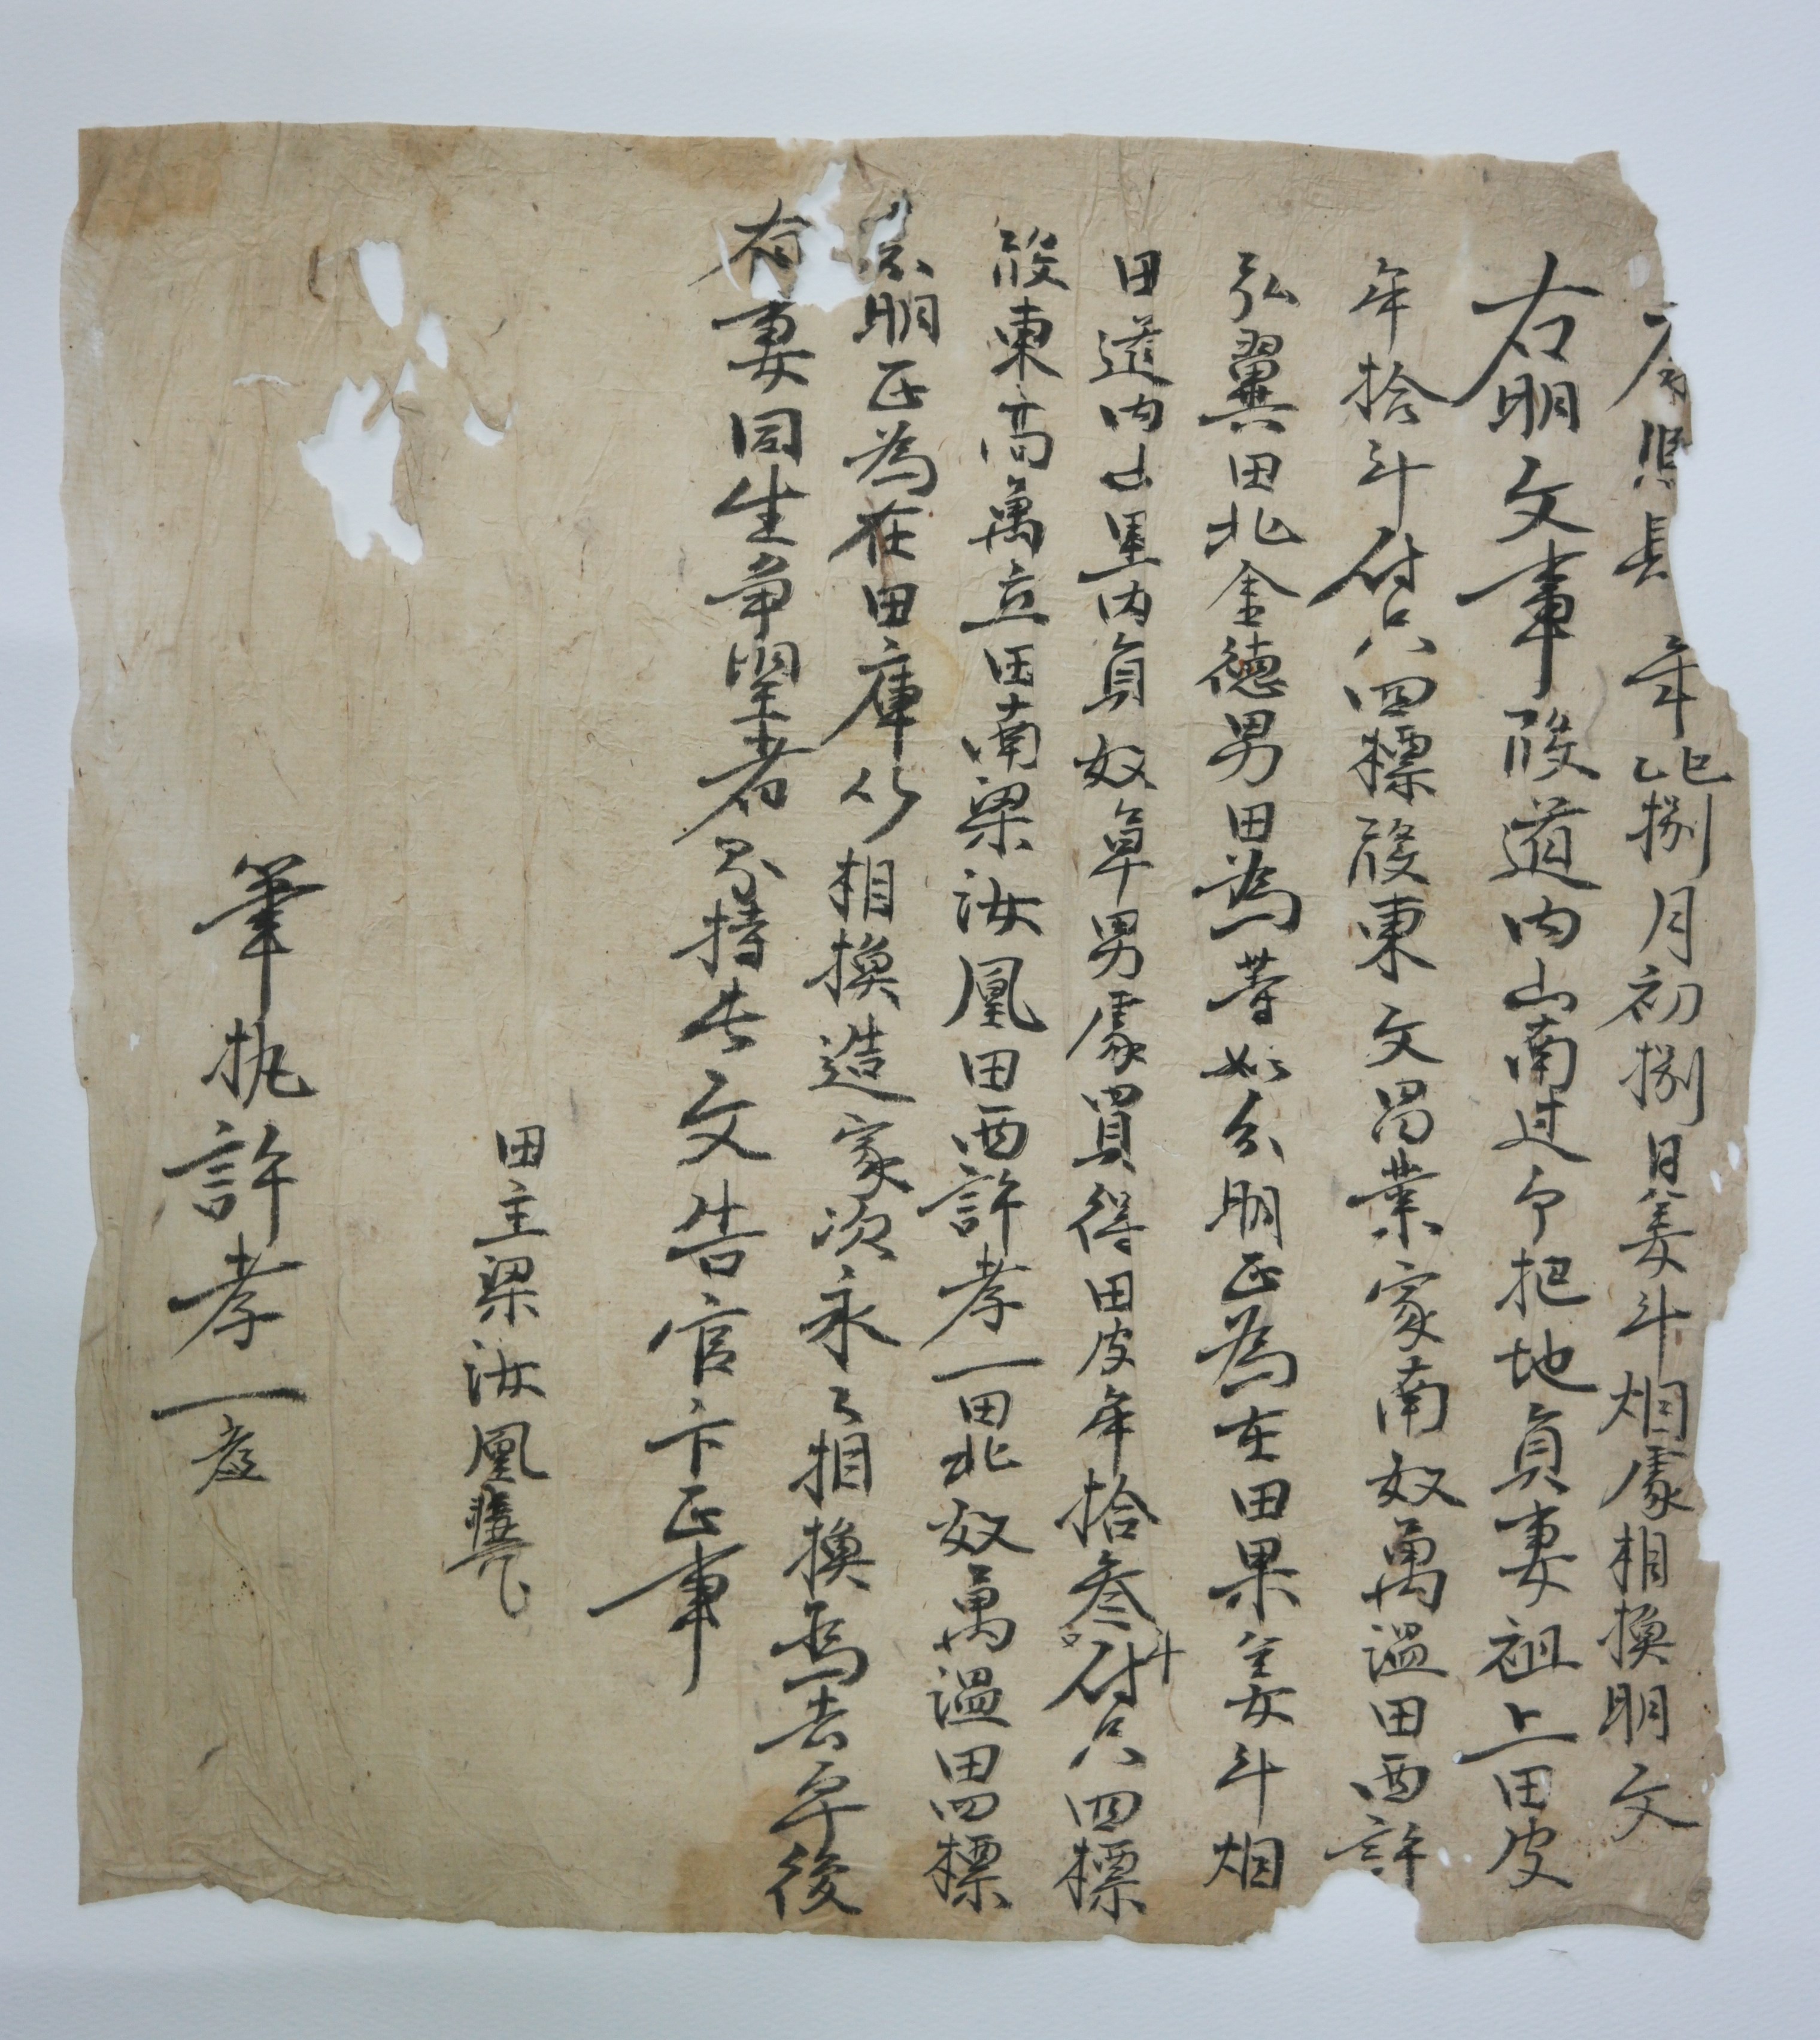 康熙 年乙巳捌月初捌日姜斗烟處相換明文
右明文事段道內山南过 把地員妻祖上田皮
年拾斗付只四標段東文昌業家南奴萬溫田西許
弘翼田北金德男田爲等如分明正爲在田果姜斗烟
田道內山里內員奴卓男處買得田皮牟拾叄斗付只四標
段東高萬立田南梁汝凰田西許孝一田北奴萬溫田四標
分明正爲在田庫以相換造家次永永相換爲去乎後
有妻同生爭望者 持此文告官卞正事
田主梁汝凰
筆执許孝一